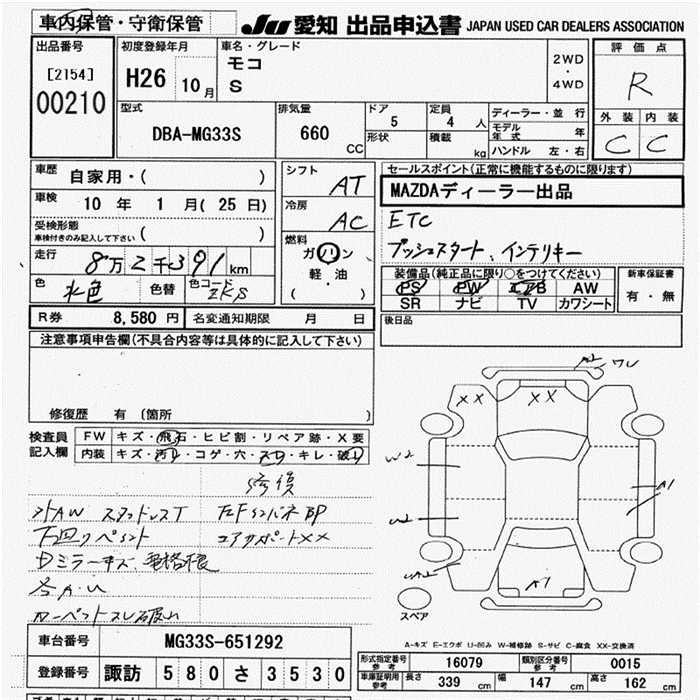 車内保管・守衛保管 JU 愛知 出品申込書 JAPAN USED CAR DEALERS ASSOCIATION
出品番号 初度登録年月 車名・グレード 評価点
[2154] H26 10月 モコ 2WD ・ 4WD R
00210 S
型式 排気量 ドア 定員 ディーラー・並行 外装 内装
DBA-MG33S 660 CC 5 4 人 モデル年式 年 C C
形状 積載 kg ハンドル 左・右
車歴 自家用・( ) シフト AT セールスポイント(正常に機能するものに限ります)
MAZDAディーラー出品
車検 10 年 1 月( 25 日) 冷房 AC ETC
受検形態 車検付きのみ記入して下さい ( ) 燃料 プッシュスタート、インテリキー
走行 8万2千391km ガソリン
軽・油
( )
装備品(純正品に限り○をつけてください) 新車保証書
色 水色 色替 色コード ZKS PS PW エアB AW 有・無
SR ナビ TV カワシート
R券 8,580 円 名変通知期限 月 日 後日品
注意事項申告欄(不具合内容等は具体的に記入して下さい)
修復歴 有 (箇所 )
検査員記入欄 FW キズ・飛石・ヒビ割・リペア跡・X要
内装 キズ・汚れ・コゲ・穴・スレ・キレ・破れ
修復
社外AW スタッドレスT 左Fインパネ BP
下回りペイント コアサポートXX
Dミラーキズ、電格不良
各A.U
カーペットスレ破れ
A2 ワレ
XX XX
W2
W2
UA2
A1
A1
スペア
A-キズ E-エクボ U-凹み W-補修跡 S-サビ C-腐食 XX-交換済
車台番号 MG33S-651292
登録番号 諏訪 580 さ 3530
形式指定番号 参考 16079 類別区分番号 参考 0015
車庫証明用 参考 長さ 339 cm 幅 147 cm 高さ 162 cm